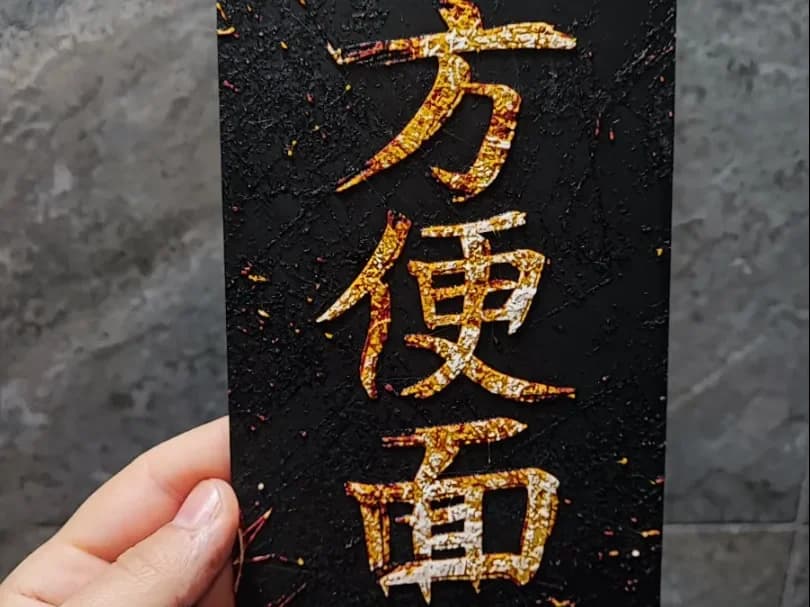 方便面